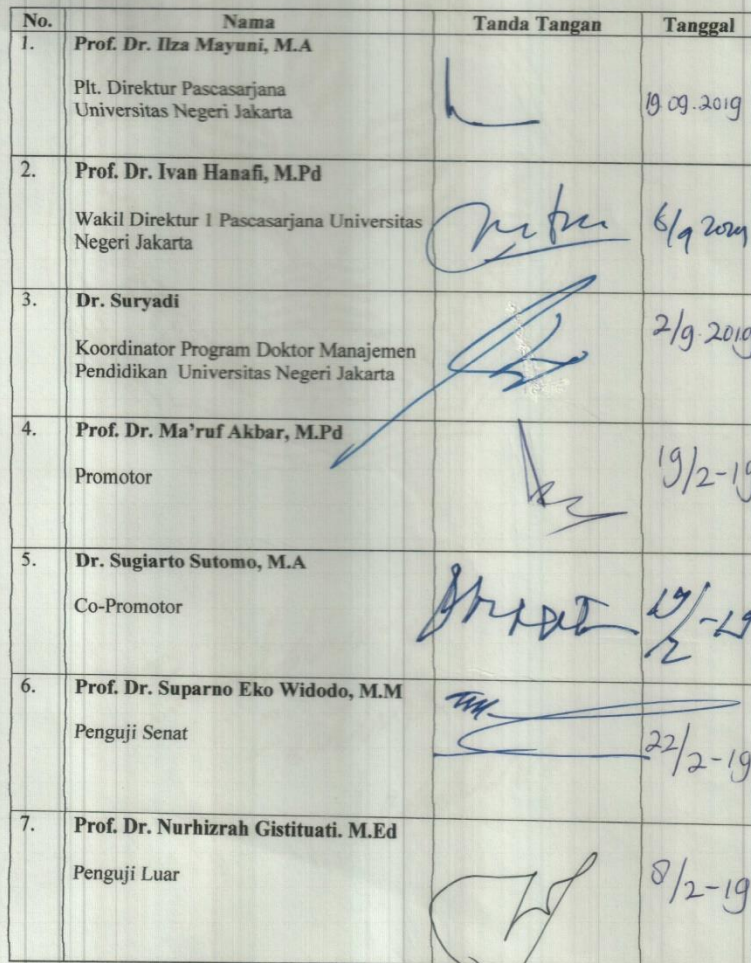 No. Nama Tanda Tangan Tanggal
1. Prof. Dr. Ilza Mayuni, M.A
Plt. Direktur Pascasarjana
Universitas Negeri Jakarta
19.09.2019
2. Prof. Dr. Ivan Hanafi, M.Pd
Wakil Direktur 1 Pascasarjana Universitas
Negeri Jakarta
3. Dr. Suryadi
Koordinator Program Doktor Manajemen
Pendidikan Universitas Negeri Jakarta
2/9.2019
4. Prof. Dr. Ma'ruf Akbar, M.Pd
Promotor
19/2-19
5. Dr. Sugiarto Sutomo, M.A
Co-Promotor
6. Prof. Dr. Suparno Eko Widodo, M.M
Penguji Senat
22/2-19
7. Prof. Dr. Nurhizrah Gistituati. M.Ed
Penguji Luar
8/2-19